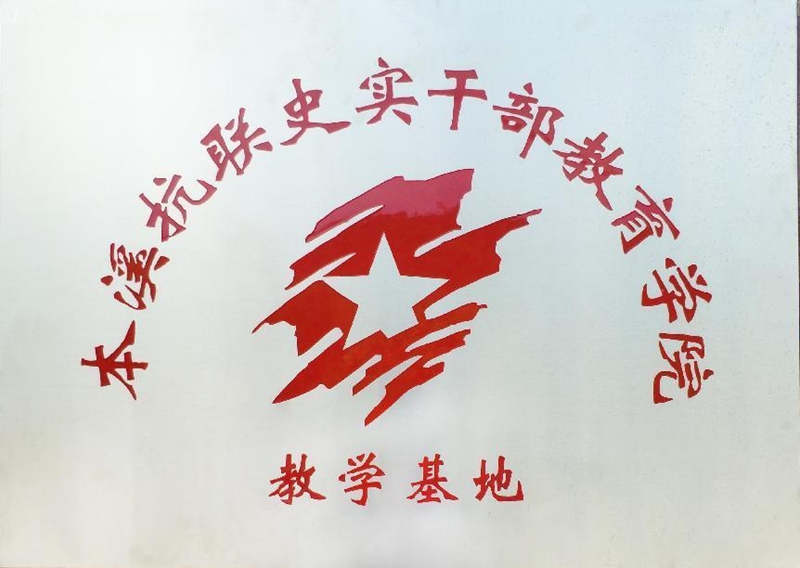 本溪抗联史实干部教育学院
教学基地